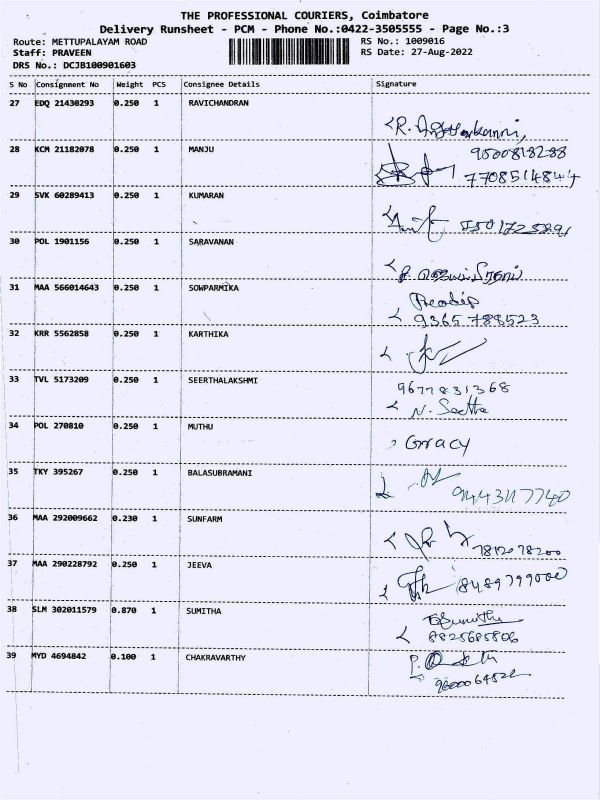 THE PROFESSIONAL COURIERS, Coimbatore
Delivery Runsheet - PCM - Phone No.:0422-3505555 - Page No.:3
Route: METTUPALAYAM ROAD
RS No.: 1009016
Staff: PRAVEEN
RS Date: 27-Aug-2022
DRS No.: DCJB100901603
S No Consignment No Weight PCS Consignee Details Signature
27 EDQ 21430293 0.250 1 RAVICHANDRAN
28 KCM 21182078 0.250 1 MANJU
9500818288
7708514844
29 SVK 60289413 0.250 1 KUMARAN
30 POL 1901156 0.250 1 SARAVANAN
31 MAA 566014643 0.250 1 SOWPARMIKA
Pradip
9365788523
32 KRR 5562858 0.250 1 KARTHIKA
33 TVL 5173209 0.250 1 SEERTHALAKSHMI
9677831368
N. Seetha
34 POL 270810 0.250 1 MUTHU
Gracy
35 TKY 395267 0.250 1 BALASUBRAMANI
9443117740
36 MAA 292009662 0.230 1 SUNFARM
7812078200
37 MAA 290228792 0.250 1 JEEVA
8489799000
38 SLM 302011579 0.870 1 SUMITHA
8825685806
39 MYD 4694842 0.100 1 CHAKRAVARTHY